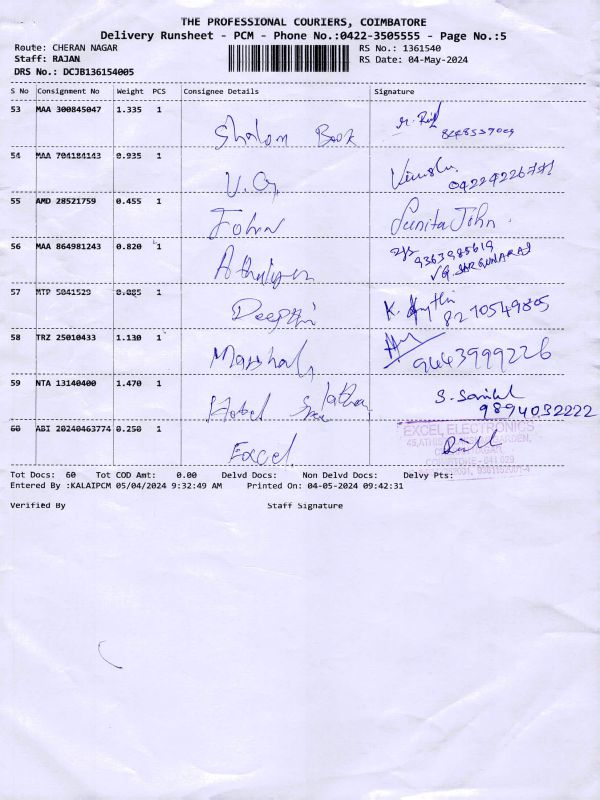 THE PROFESSIONAL COURIERS, COIMBATORE
Delivery Runsheet - PCM - Phone No.:0422-3505555 - Page No.:5
Route: CHERAN NAGAR RS No.: 1361540
Staff: RAJAN RS Date: 04-May-2024
DRS No.: DCJB136154005
S No Consignment No Weight PCS Consignee Details Signature
53 MAA 300845047 1.335 1
Shalom Book
54 MAA 704184143 0.935 1
V.G.
55 AMD 28521759 0.455 1
John Sunita John
56 MAA 864981243 0.820 1
9363985619
57 MTP 5041529 0.085 1
Deepthi K. 8270549805
58 TRZ 25010433 1.130 1
9443999226
59 NTA 13140400 1.470 1
Hotel Sree S.
9894032222
60 ABI 20240463774 0.250 1 EXCEL ELECTRONICS
Excel
Tot Docs: 60 Tot COD Amt: 0.00 Delvd Docs: Non Delvd Docs: Delvy Pts:
Entered By :KALAIPCM 05/04/2024 9:32:49 AM Printed On: 04-05-2024 09:42:31
Verified By Staff Signature